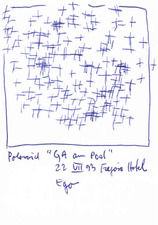 Polaroid "GA am Pool"
22 VII 93 Hotel
Ego